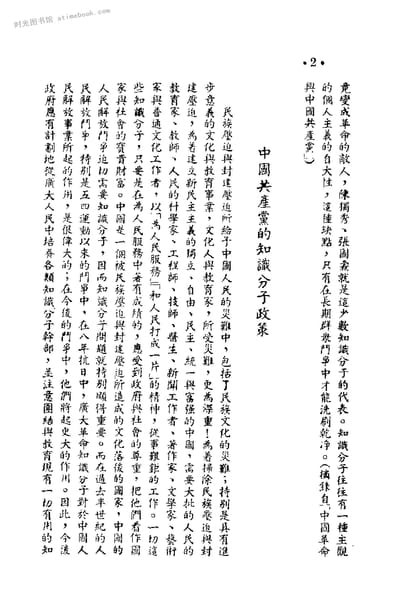 时光图书馆 · atimebook.com
·2·
竟變成革命的敵人，陳獨秀、張國燾就是這少數知識分子的代表。知識分子往往有一種主觀
的個人主義的自大性，這種缺點，只有在長期群眾鬥爭中才能洗刷乾淨。（摘錄自「中國革命
與中國共產黨」）
中國共產黨的知識分子政策
民族壓迫與封建壓迫所給予中國人民的災難中，包括了民族文化的災難；特別是具有進
步意義的文化與教育事業，文化人與教育家，所受災難，更為深重！為着掃除民族壓迫與封
建壓迫，為着建立新民主主義的獨立、自由、民主、統一與富强的中國，需要大批的人民的
教育家、教師、人民的科學家、工程師、技師、醫生、新聞工作者、著作家、文學家、藝術
家與普通文化工作者，以「為人民服務」「和人民打成一片」的精神，從事艱鉅的工作。一切這
些知識分子，只要是在為人民服務中著有成績的，應受到政府與社會的尊重，把他們看作國
家與社會的寶貴財富。中國是一個被民族壓迫與封建壓迫所造成的文化落後的國家，中國的
人民解放鬥爭迫切需要知識分子，因而知識分子問題就特別顯得重要。而在過去半世紀的人
民解放鬥爭，特別是五四運動以來的鬥爭中，在八年抗日中，廣大革命知識分子對於中國人
民解放事業所起的作用，是很偉大的；在今後的鬥爭中，他們將起更大的作用。因此，今後
政府應有計劃地從廣大人民中培養各類知識分子幹部，並注意團結與教育現有一切有用的知